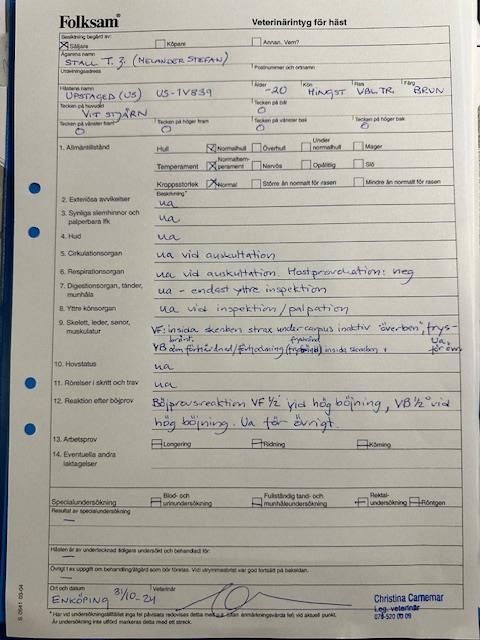 Folksam®
Veterinärintyg för häst
Besiktning begärd av:
Säljare Köpare Annan. Vem?
Ägarens namn
STALL T. Z. (MELANDER STEFAN)
Utdelningsadress Postnummer och ortnamn
Hästens namn Ålder Kön Ras Färg
UPSTAGED (US) US-1V839 -20 HINGST VBL.TR. BRUN
Tecken på huvudet Tecken på bål
VIT STJÄRN O
Tecken på vänster fram Tecken på höger fram Tecken på vänster bak Tecken på höger bak
O O O O
1. Allmäntillstånd Hull Normalhull Överhull Under normalhull Mager
Temperament Normaltemperament Nervös Opålitlig Slö
Kroppsstorlek Normal Större än normalt för rasen Mindre än normalt för rasen
Beskrivning*
2. Exteriösa avvikelser ua
3. Synliga slemhinnor och palperbara lfk ua
4. Hud ua
5. Cirkulationsorgan ua vid auskultation
6. Respirationsorgan ua vid auskultation. Hostprovokation: neg
7. Digestionsorgan, tänder, munhåla ua - endast yttre inspektion
8. Yttre könsorgan ua vid inspektion/palpation
9. Skelett, leder, senor, muskulatur VF: insida skenben strax under carpus inaktiv "överben", frys-
bränt.
VB insida skenben Ua för övr.
10. Hovstatus ua
11. Rörelser i skritt och trav ua
12. Reaktion efter böjprov Böjprovsreaktion VF 1/2° vid hög böjning, VB 1/2° vid
hög böjning. Ua för övrigt.
13. Arbetsprov Longering Ridning Körning
14. Eventuella andra iakttagelser
Specialundersökning Blod- och urinundersökning Fullständig tand- och munhåleundersökning Rektalundersökning Röntgen
Resultat av specialundersökning
—
Hästen är av undertecknad tidigare undersökt och behandlad för:
—
—
Ort och datum Veterinär
ENKÖPING 31/10-24
Christina Carnemar
Leg. veterinär
S 0541 03-04
Är undersökning inte utförd markeras detta med ett streck.